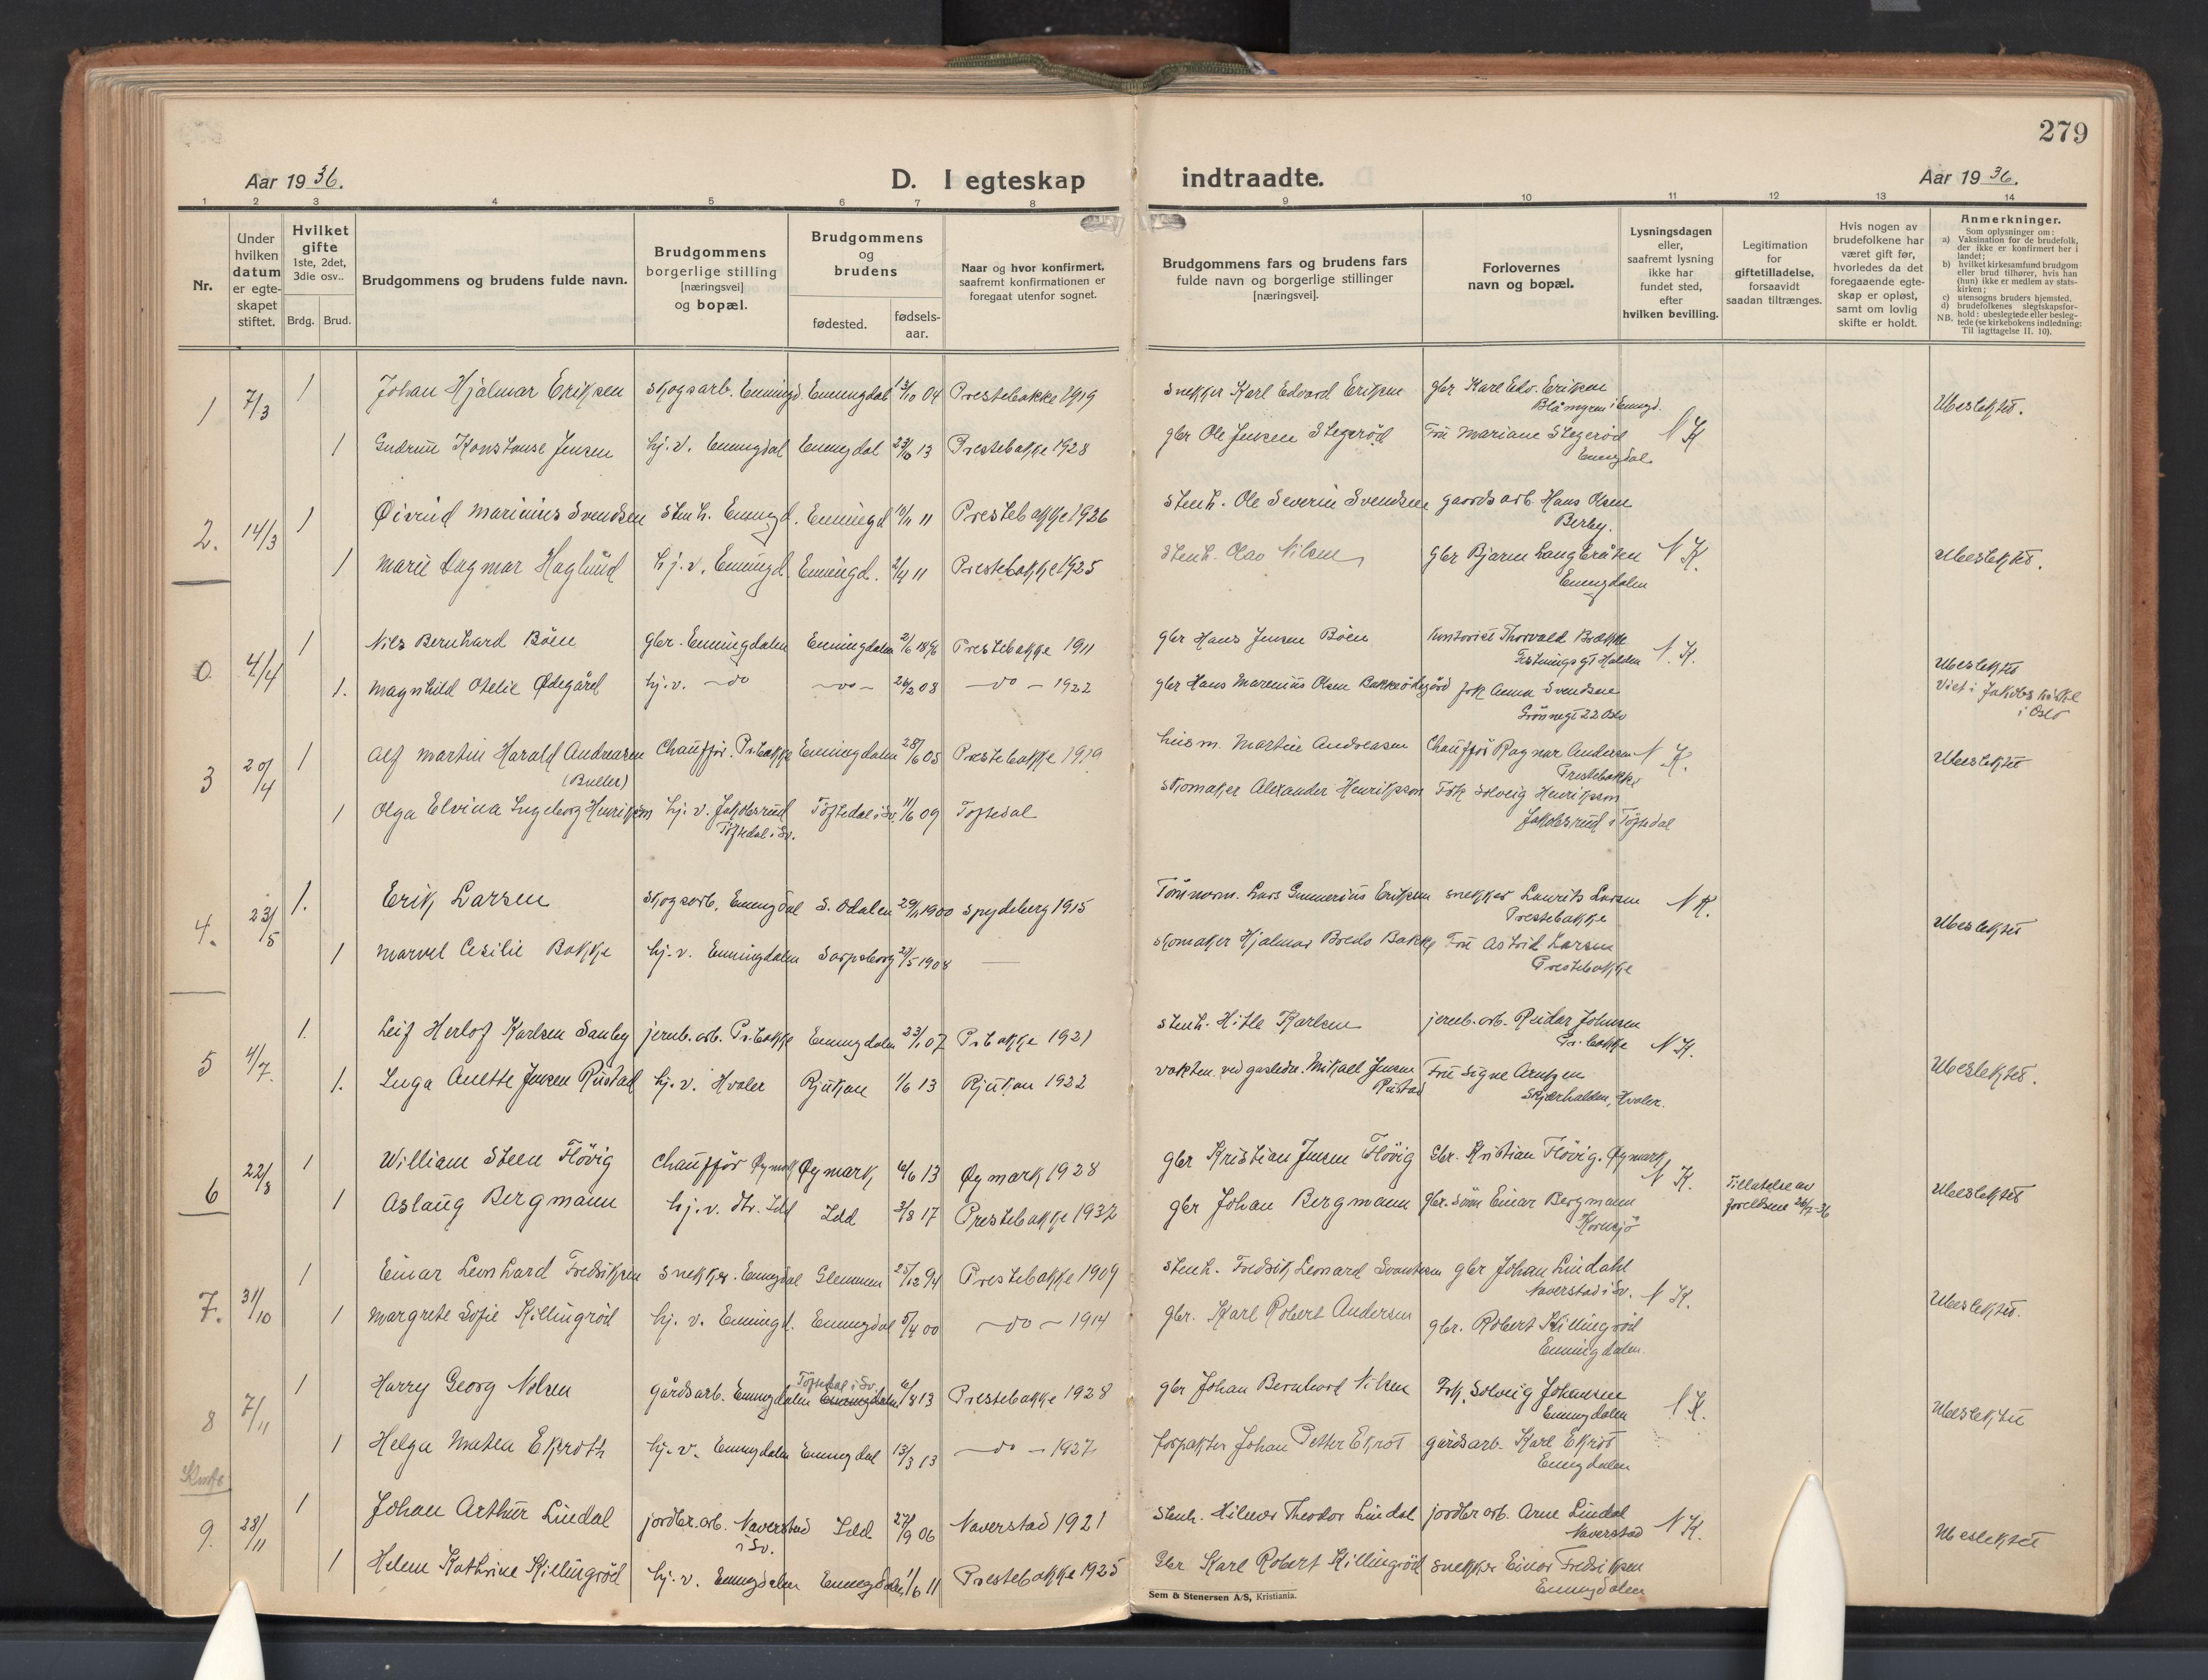 279
Aar 1936.
D. I egteskap indtraadte.
Aar 1936.
1 2 3 4 5 6 7 8 9 10 11 12 13 14
Nr.
Under hvilken datum er egteskapet stiftet.
Hvilket gifte 1ste, 2det, 3die osv..
Brdg. Brud.
Brudgommens og brudens fulde navn.
Brudgommens borgerlige stilling [næringsvei] og bopæl.
Brudgommens og brudens
fødested. fødsels-aar.
Naar og hvor konfirmert, saafremt konfirmationen er foregaat utenfor sognet.
Brudgommens fars og brudens fars fulde navn og borgerlige stillinger [næringsvei].
Forlovernes navn og bopæl.
Lysningsdagen eller, saafremt lysning ikke har fundet sted, efter hvilken bevilling.
Legitimation for giftetilladelse, forsaavidt saadan tiltrænges.
Hvis nogen av brudefolkene har været gift før, hvorledes da det foregaaende egteskap er opløst, samt om lovlig skifte er holdt.
Anmerkninger.
Som oplysninger om:
a) Vaksination for de brudefolk, der ikke er konfirmert her i landet;
b) hvilket kirkesamfund brudgom eller brud tilhører, hvis han (hun) ikke er medlem av statskirken;
c) utensogns bruders hjemsted.
d) brudefolkenes slegtskapsforhold: ubeslegtede eller beslegtede (se kirkebokens indledning:
NB. Til iagttagelse II. 10).
1 7/3 1 Johan Hjalmar Eriksen skogsarb. Enningd. Enningdal 13/10 04 Prestebakke 1919 snekker Karl Edvard Eriksen gbr Karl Edv. Eriksen
Blåmyren i Enngd. Ubeslektet.
1 Gudrun Konstanse Jensen hj.v. Enningdal Enningdal 23/10 13 Prestebakke 1928 gbr Ole Jensen Stegerød Fru Mariane Stegerød N K
Enngdal
2. 14/3 1 Øivind Marinius Svendsen stenh. Enningd. Enningd 11/11 11 Prestebakke 1926 stenh. Ole Severin Svendsen gaardsarb. Hans Olsen
Berby.
1 Marie Dagmar Haglund hj.v. Enningd. Enningd. 2/4 11 Prestebakke 1925 stenh. Olav Nilsen gbr Bjarne Langbråten N K. Ubeslektet.
Enningdalen
0 4/4 1 Nils Bernhard Böen gbr. Enningdalen Enningdalen 2/6 1896 Prestebakke 1911 gbr Hans Jensen Böen kontorist Thorvald Brække N. K.
Festningsgt Halden Ubeslektet
1. Magnhild Otelie Ødegård hj.v. -do -do- 26/2 08 -do- 1922 gbr Hans Marenius Olsen Bakkeødegård frk Anna Svendsen Viet i Jakobs kirke
Grønnegt 22 Oslo i Oslo
3 20/4 1 Alf Martin Harald Andreasen Chauffør. Pr.bakke Enningdalen 28/6 05 Prestebakke 1919 husm. Martin Andreasen Chauffør Ragnar Andersen N K. Ubeslektet
(Buller) Prestebakke
1 Olga Elvina Ingeborg Henriksen hj.v. Jakobsrud Töftedal i Sv. 11/6 09 Töftedal skomaker Alexander Henriksson Frk Solveig Henriksson
Töftedal i Sv. Jakobsrud i Töftedal
4. 23/5 1. Erik Larsen skogsarb. Enningdal S. Odalen 29/1 1900 Spydeberg 1915 Tömmerm. Lars Gunnerius Eriksen snekker Laurits Larsen N K.
Prestebakke Ubeslektet
1 Marvel Cesilie Bakke hj.v. Enningdalen Sarpsborg 24/5 1908 — skomaker Hjalmar Bredo Bakke Fru Astrid Larsen
Prestebakke
5 4/7. 1. Leif Herlof Karlsen Sanby jernb.arb. Pr.bakke Enningdalen 23/1 07 Pr.bakke 1921 stenh. Hitle Karlsen jernb.arb. Reidar Johnsen
Pr.bakke N K.
1. Inga Anette Jensen Rustad hj.v. Hvaler Rjukan 1/6 13 Rjukan 1922 vaktm. ved gasledn. Mikael Jensen Fru Signe Arntzen Ubeslektet.
Rustad Skjærhalden, Hvaler.
6 22/8 1 William Steen Flövig Chauffør Øymark Øymark 6/6 13 Øymark 1928 gbr Kristian Jensen Flövig Gbr. Kristian Flövig. Øymark
N K. Tillatelse av
1 Aslaug Bergmann hj.v. dtr. Idd Idd 3/8 17 Prestebakke 1932 gbr Johan Bergmann gbr. sönn Einar Bergmann foreldrene 26/7-36 Ubeslektet
Kornsjø
7. 31/10 1 Einar Leonhard Fredriksen snekker. Enningdal Glemmen 25/12 94 Prestebakke 1909 stenh. Fredrik Leonard Svantesen gbr Johan Lindahl
Naverstad i Sv. N K.
1 Margrete Sofie Killingrød hj.v. Enningd. Enningdal 5/4 00 -do- 1914 gbr. Karl Robert Andersen gbr. Robert Killingrød Ubeslektet.
Enningdalen.
8 7/11 1 Harry Georg Nilsen gårdsarb. Enningdalen Töftedal i Sv. Enningdalen 6/8 13 Prestebakke 1928 gbr Johan Bernhard Nilsen Frk. Solveig Johansen
Enningdalen N K.
1 Helga Matea Ekroth hj.v. Enningdalen Enningdal 13/3 13 -do- 1927 forpakter Johan Petter Ekrot gårdsarb. Karl Ekrot Ubeslektet
Enningdalen
9. 28/11 1 Johan Arthur Lindal jordbr.arb. Naverstad Idd 27/9 06 Naverstad 1921 stenh. Hilmer Theodor Lindal jordbr arb. Arne Lindal
i Sv. Naverstad N K.
1 Helene Kathrine Killingrød hj.v. Enningdalen Enningdalen 1/6 11 Prestebakke 1925 Gbr Karl Robert Killingrød snekker Einar Fredriksen Ubeslektet
Enningdalen
Sem & Stenersen A/S, Kristiania.